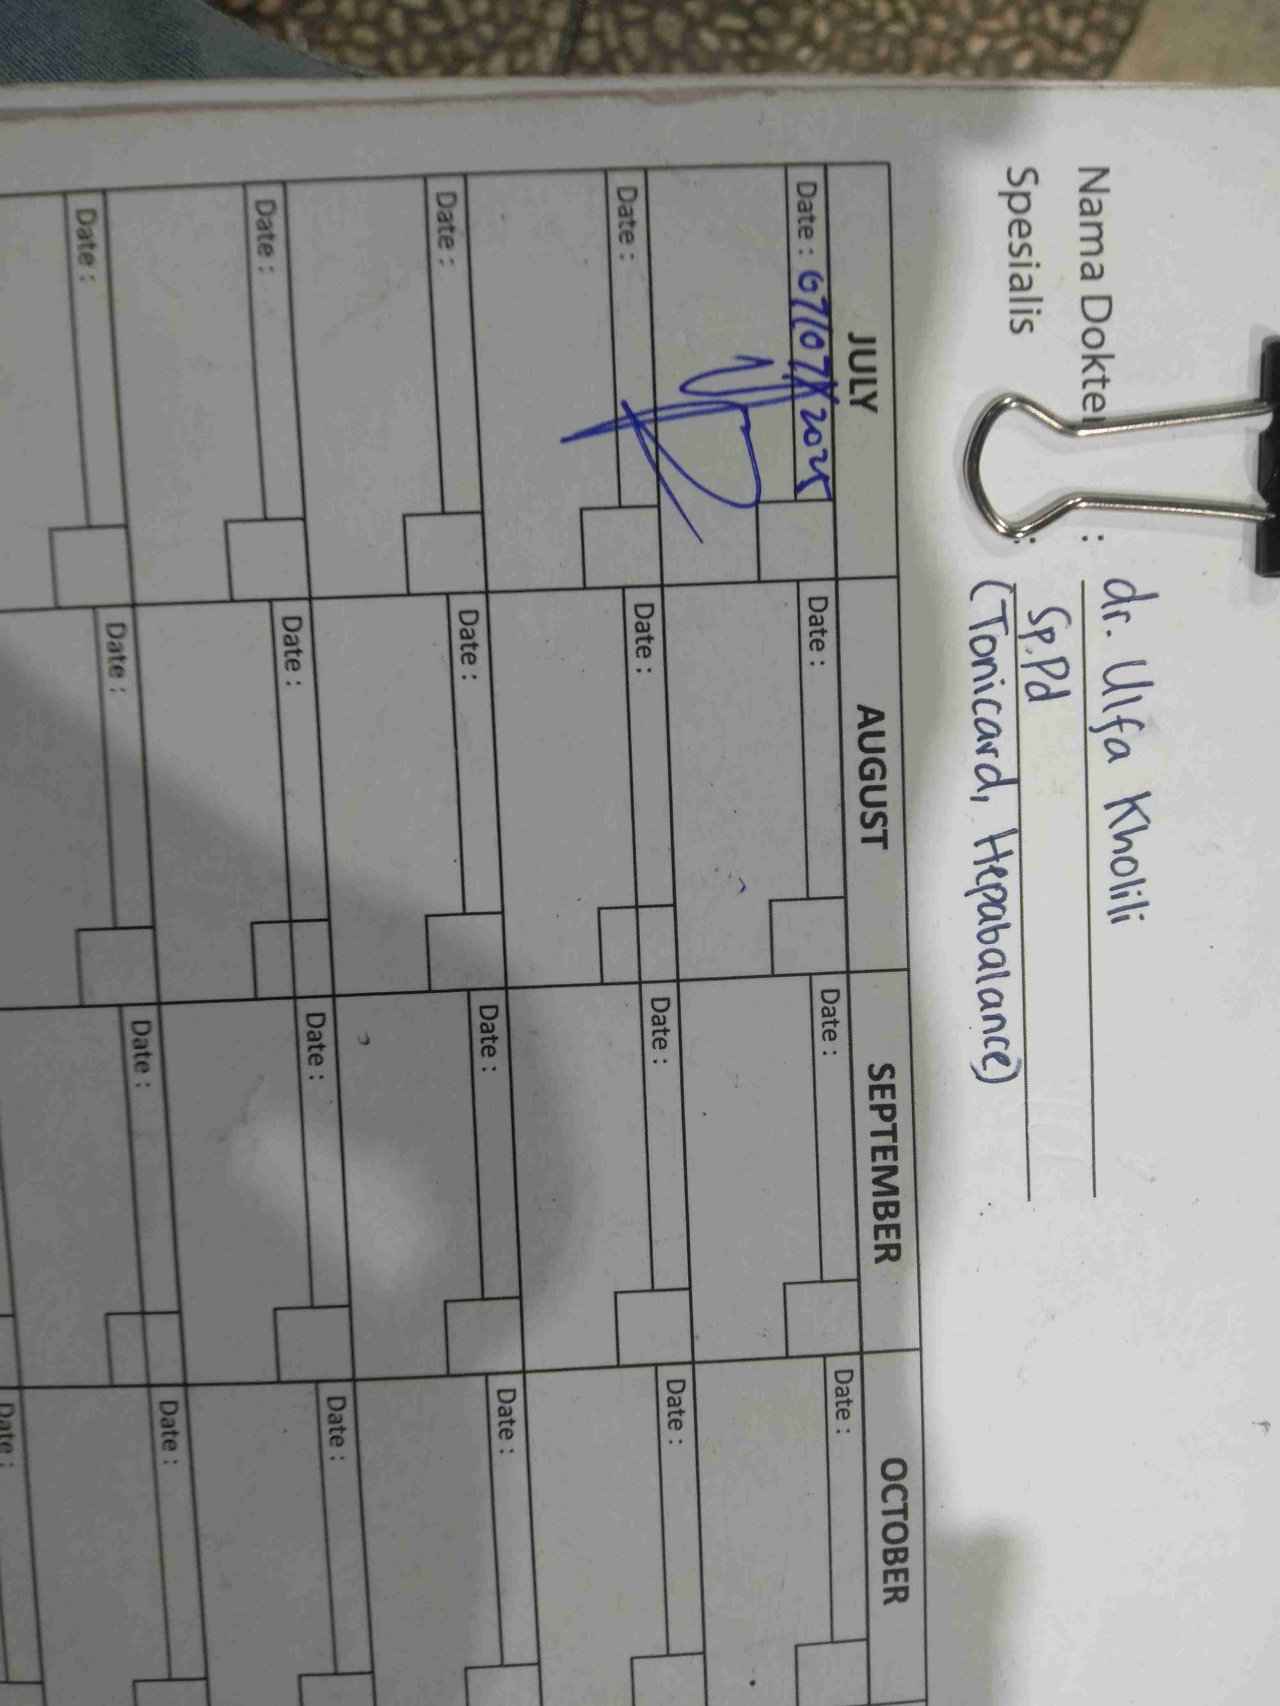 Nama Dokter : dr. Ulfa Kholili
Spesialis : Sp.Pd
(Tonicard, Hepabalance)
JULY AUGUST SEPTEMBER OCTOBER
Date : 07/07/2025 Date : Date : Date :
Date : Date : Date : Date :
Date : Date : Date : Date :
Date : Date : Date : Date :
Date : Date : Date : Date :
Date :